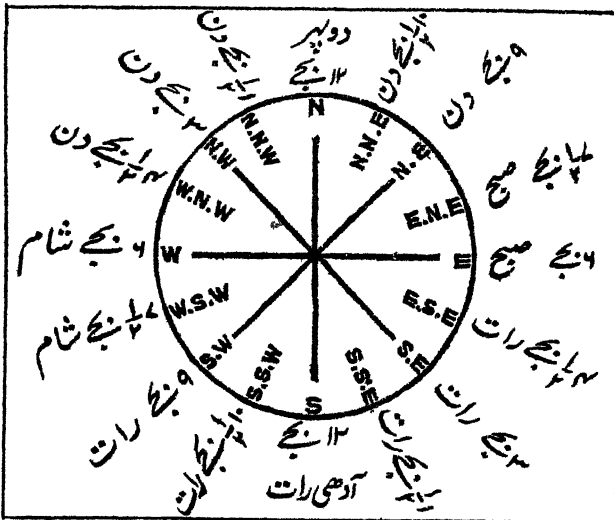 دوپہر
۱۲ بجے
N
۱۰ ۱/۲ بجے دن
N.N.E
۹ بجے دن
N.E
۷ ۱/۲ بجے صبح
E.N.E
۶ بجے صبح
E
۴ ۱/۲ بجے رات
E.S.E
۳ بجے رات
S.E
۱ ۱/۲ بجے رات
S.S.E
S
۱۲ بجے
آدھی رات
۱۰ ۱/۲ بجے رات
S.S.W
۹ بجے رات
S.W
۷ ۱/۲ بجے شام
W.S.W
۶ بجے شام
W
۴ ۱/۲ بجے دن
W.N.W
۳ بجے دن
N.W
۱ ۱/۲ بجے دن
N.N.W